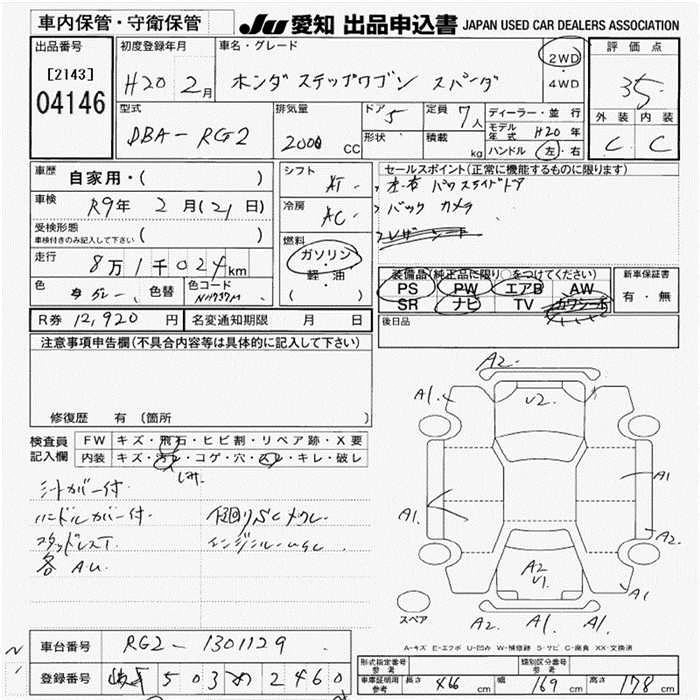 車内保管・守衛保管
JU 愛知 出品申込書 JAPAN USED CAR DEALERS ASSOCIATION
出品番号 [2143] 04146
初度登録年月 H20 2月
車名・グレード ホンダ ステップワゴン スパーダ
2WD・4WD
評価点 3.5
外装 C 内装 C
型式 DBA-RG2
排気量 2000 CC
ドア 5 形状
定員 7人 積載 kg
ディーラー・並行
モデル年式 H20年
ハンドル 左・右
車歴 自家用・( )
車検 R9年 2月(21日)
受検形態 車検付きのみ記入して下さい ( )
走行 8万1千024km
色 色替 色コード
シフト AT
冷房 AC
燃料 ガソリン・軽・油 ( )
セールスポイント(正常に機能するものに限ります)
左右 パワスライドドア
バック カメラ
レザーシート
装備品(純正品に限り○をつけてください)
PS PW エアB AW
SR ナビ TV カワシート
新車保証書 有・無
後日品
R券 12,920円 名変通知期限 月 日
注意事項申告欄(不具合内容等は具体的に記入して下さい)
修復歴 有 (箇所 )
検査員記入欄
FW キズ・飛石・ヒビ割・リペア跡・X要
内装 キズ・汚レ・コゲ・穴・スレ・キレ・破レ
シートカバー付
ハンドルカバー付.
スタッドレスT.
各 AU.
下廻りSCメクレ.
エンジンルームSC.
A2. A1. V2 A1. A1 A2. A2 V1. A1 A2. A1. A1.
スペア
A-キズ E-エクボ U-凹み W-補修跡 S-サビ C-腐食 XX-交換済
車台番号 RG2-1301129
登録番号 503 2460
型式指定番号 参考
類別区分番号 参考
車庫証明用 参考 長さ 466cm 幅 169cm 高さ 178cm